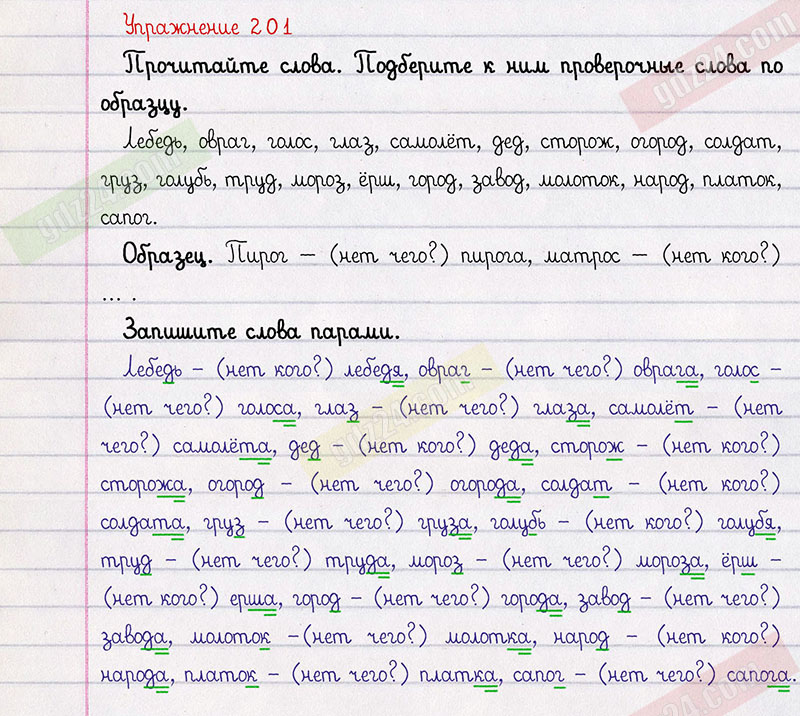 Упражнение 201
Прочитайте слова. Подберите к ним проверочные слова по
образцу.
Лебедь, овраг, голос, глаз, самолёт, дед, сторож, огород, солдат,
груз, голубь, труд, мороз, ёрш, город, завод, молоток, народ, платок,
сапог.
Образец. Пирог – (нет чего?) пирога, матрос – (нет кого?)
... .
Запишите слова парами.
Лебедь – (нет кого?) лебедя, овраг – (нет чего?) оврага, голос –
(нет чего?) голоса, глаз – (нет чего?) глаза, самолёт – (нет
чего?) самолёта, дед – (нет кого?) деда, сторож – (нет кого?)
сторожа, огород – (нет чего?) огорода, солдат – (нет кого?)
солдата, груз – (нет чего?) груза, голубь – (нет кого?) голубя,
труд – (нет чего?) труда, мороз – (нет чего?) мороза, ёрш –
(нет кого?) ерша, город – (нет чего?) города, завод – (нет чего?)
завода, молоток –(нет чего?) молотка, народ – (нет кого?)
народа, платок – (нет чего?) платка, сапог – (нет чего?) сапога.
gdz24.com
gdz24.com
gdz24.com
gdz24.com